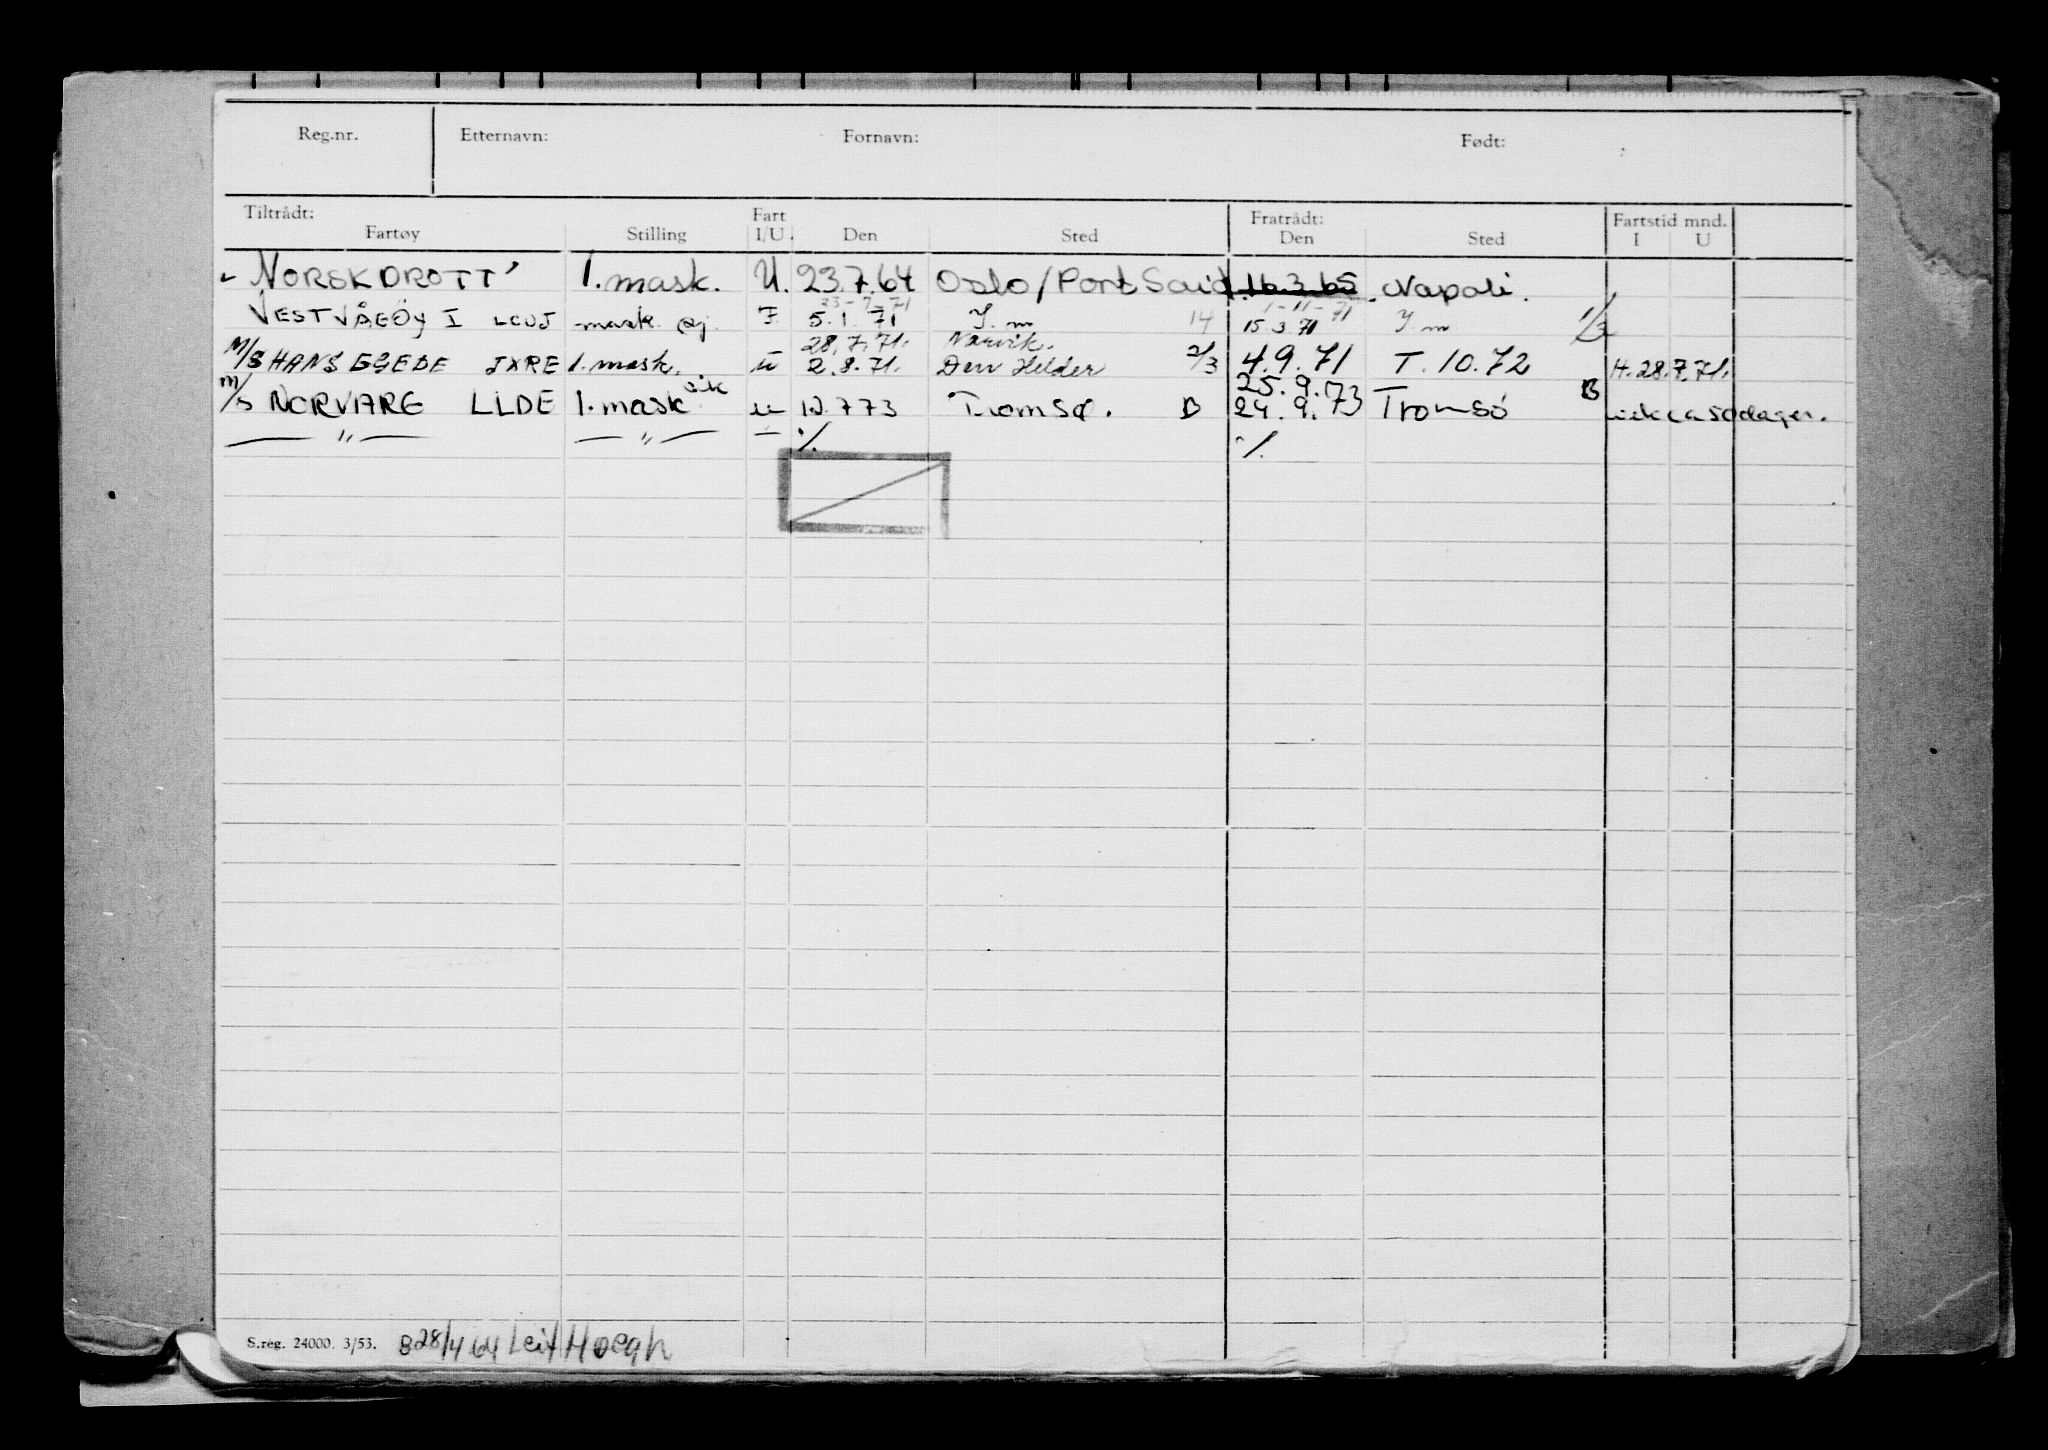 Reg.nr. Etternavn: Fornavn: Født:
Tiltrådt: Fart Fratrådt: Fartstid mnd.
Fartøy Stilling I/U. Den Sted Den Sted I U
NORSKDROTT' 1. mask. U. 23.7.64 Oslo/Port Said 16.3.65 Napoli.
23-7-71 1-11-71
VESTVÅGÖY I LCUJ mask. 5.1.71 14 15.3.71 1/3
28.7.71. Narvik.
M/S HANS EGEDE JXRE 1. mask. U 2.8.71. Den Helder 2/3 4.9.71 T. 10.72 H. 28.7.71.
25.9.73 B
M/S NORVARG LLDE 1. mask U 12.773 Tromsø. B 24.9.73 Tromsö dager.
— " — — " — — ./. ./.
S.reg. 24000. 3/53. B 28/4 64 Leif Hoegh